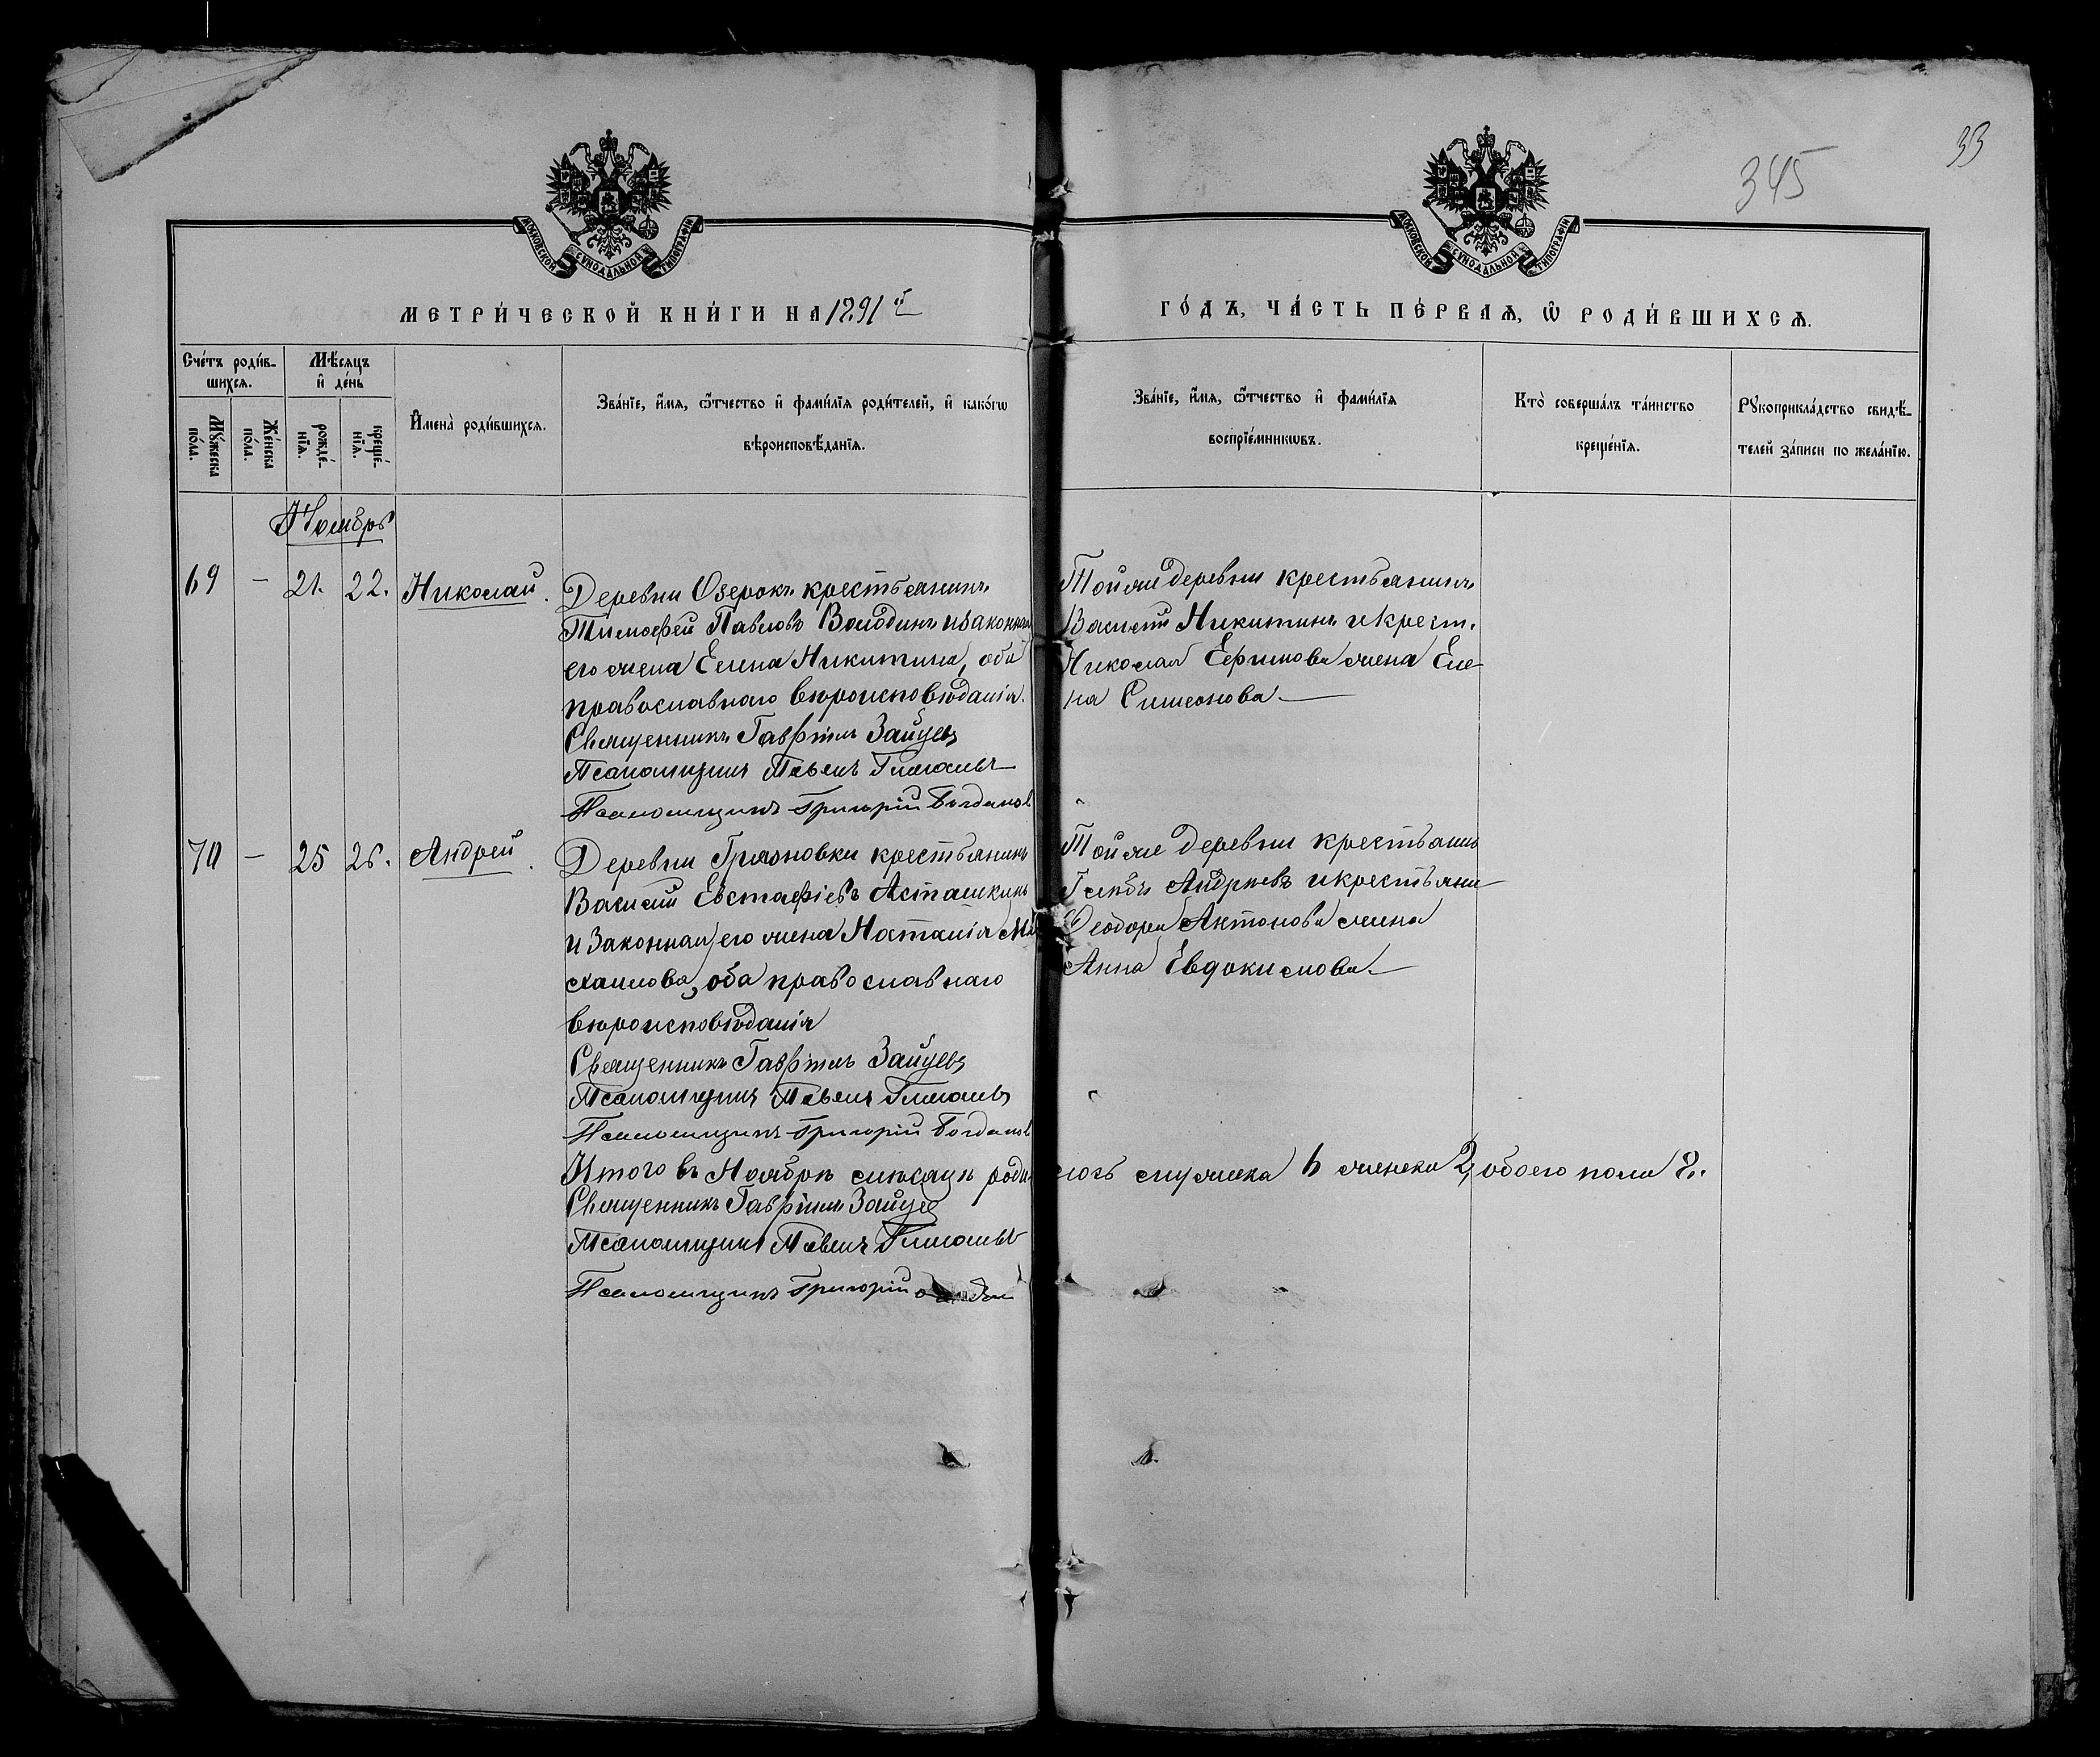 33
345
МОСКОВСКОЙ СѴНОДАЛЬНОЙ ТИПОГРАФІИ
МОСКОВСКОЙ СѴНОДАЛЬНОЙ ТИПОГРАФІИ
МЕТРИ́ЧЕСКОЙ КНИ́ГИ НА 1891й
ГО́ДЪ, ЧА́СТЬ ПЕ́РВАѦ, Ѡ҆ РОДИ́ВШИХСѦ.
Сче́тъ роди́в-
шихсѧ.
Мѣ́сѧцъ
и҆ де́нь
Мꙋ́жеска
по́ла.
Же́нска
по́ла.
рожде́-
нїѧ.
креще́-
нїѧ.
И҆мена̀ роди́вшихсѧ.
Зва́нїе, и҆́мѧ, ѻ҆́тчество и҆ фами́лїѧ роди́телей, и҆ како́гѡ
вѣроисповѣ́данїѧ.
Зва́нїе, и҆́мѧ, ѻ҆́тчество и҆ фами́лїѧ
воспрїе́мникѡвъ.
Кто̀ соверша́лъ та́инство
креще́нїѧ.
Рꙋкоприкла́дство свидѣ́-
телей за́писи по жела́нїю.
Ноябрь
69 - 21. 22. Николай.
Деревни Озерокъ крестьянинъ
Тимофей Павловъ Володинъ и законная
его жена Елена Никитина, оба
православнаго вѣроисповѣданія.
Священникъ Гавріилъ Зайцевъ
Псаломщикъ Павелъ
Псаломщикъ Григорій Богданов
Той же деревни крестьянинъ
Василій Никитинъ и крест.
Николая Ефимова жена Еле-
на Симеонова
70 - 25 26. Андрей.
Деревни Грязновки крестьянинъ
Василій Евстафіевъ Асташкинъ
и законная его жена Наталія Ми
хаилова, оба православнаго
вѣроисповѣданія
Священникъ Гавріилъ Зайцевъ
Псаломщикъ Павелъ
Псаломщикъ Григорій Богданов
Той же деревни крестьянинъ
Глѣбъ Андреевъ и крестьяни
Ѳеодора Антонова жена
Анна Евдокимова
Итого въ Ноябрѣ мѣсяцѣ родилось мужска 6 женска 2, обоего пола 8.
Священникъ Гавріилъ Зайцев
Псаломщикъ Павелъ
Псаломщикъ Григорій